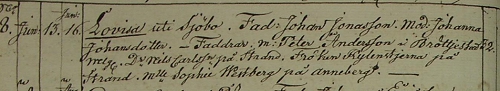 8. Juni. 13. 16. Lovisa uti Sjöbo. Fad: Johan Jonasson. Mod: Johanna
Johansdotter. — Faddrar. n: Peter Andersson i 32.
Nils Carlsson på Strand. Fröken Gyllenstjerna på
Strand. mlle Sophie Westberg på Anneberg. —